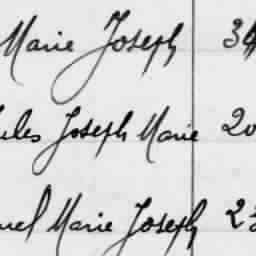 Marie Joseph 34
ules Joseph Marie 20
uel Marie Joseph 22